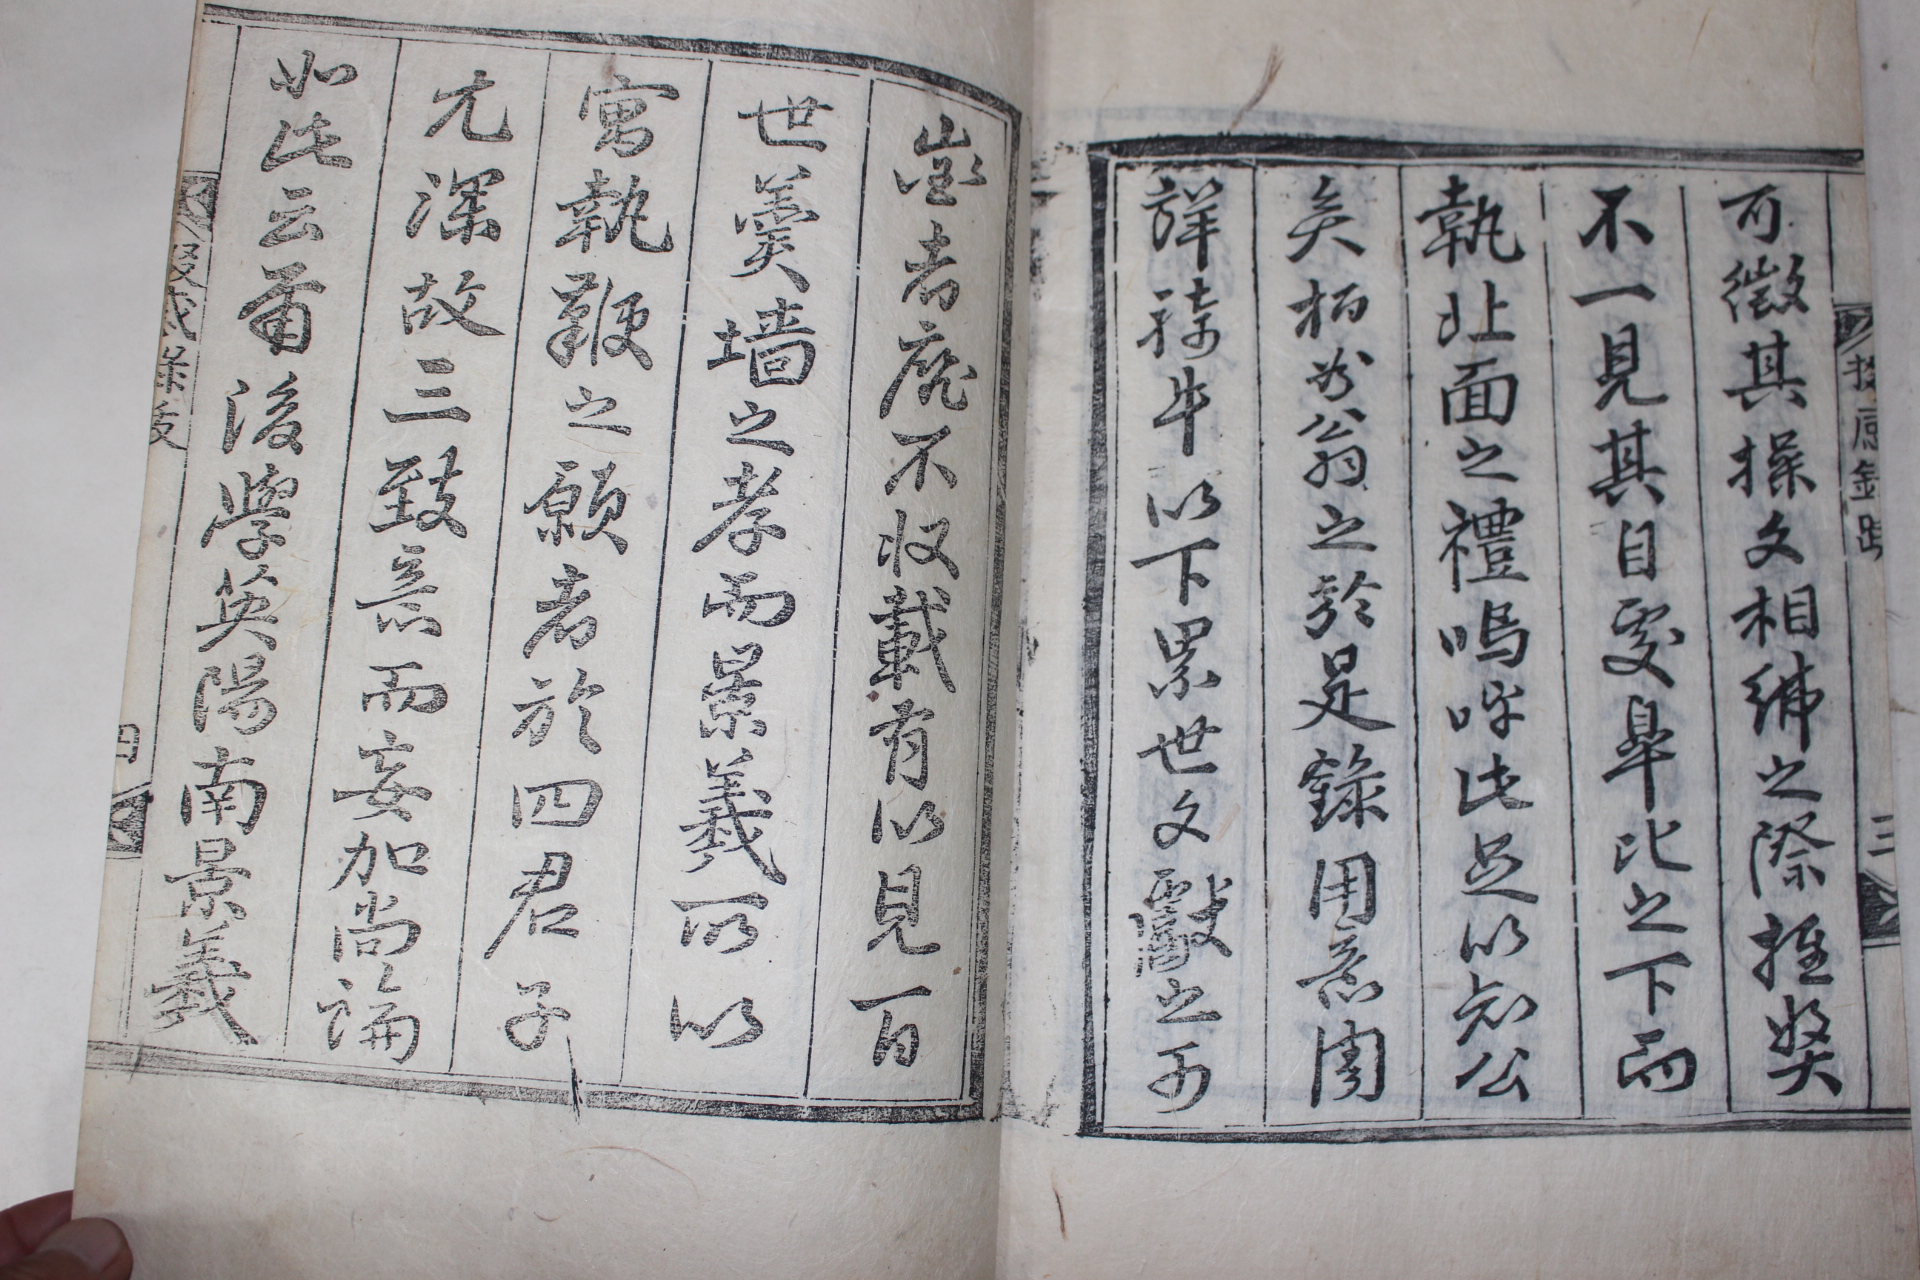 可徵其操文相綈之際推奬
不一見其自處卑比之下而
執北面之禮嗚呼此足以知公
矣栢公翁之於是錄用意周
詳特牛以下累世文獻之可
者庶不收載有以見百
世羹墻之孝而景義所以
寓執鞭之願者於四君子
尤深故三致意而妄加尚論
如此云爾後學英陽南景羲
三
四